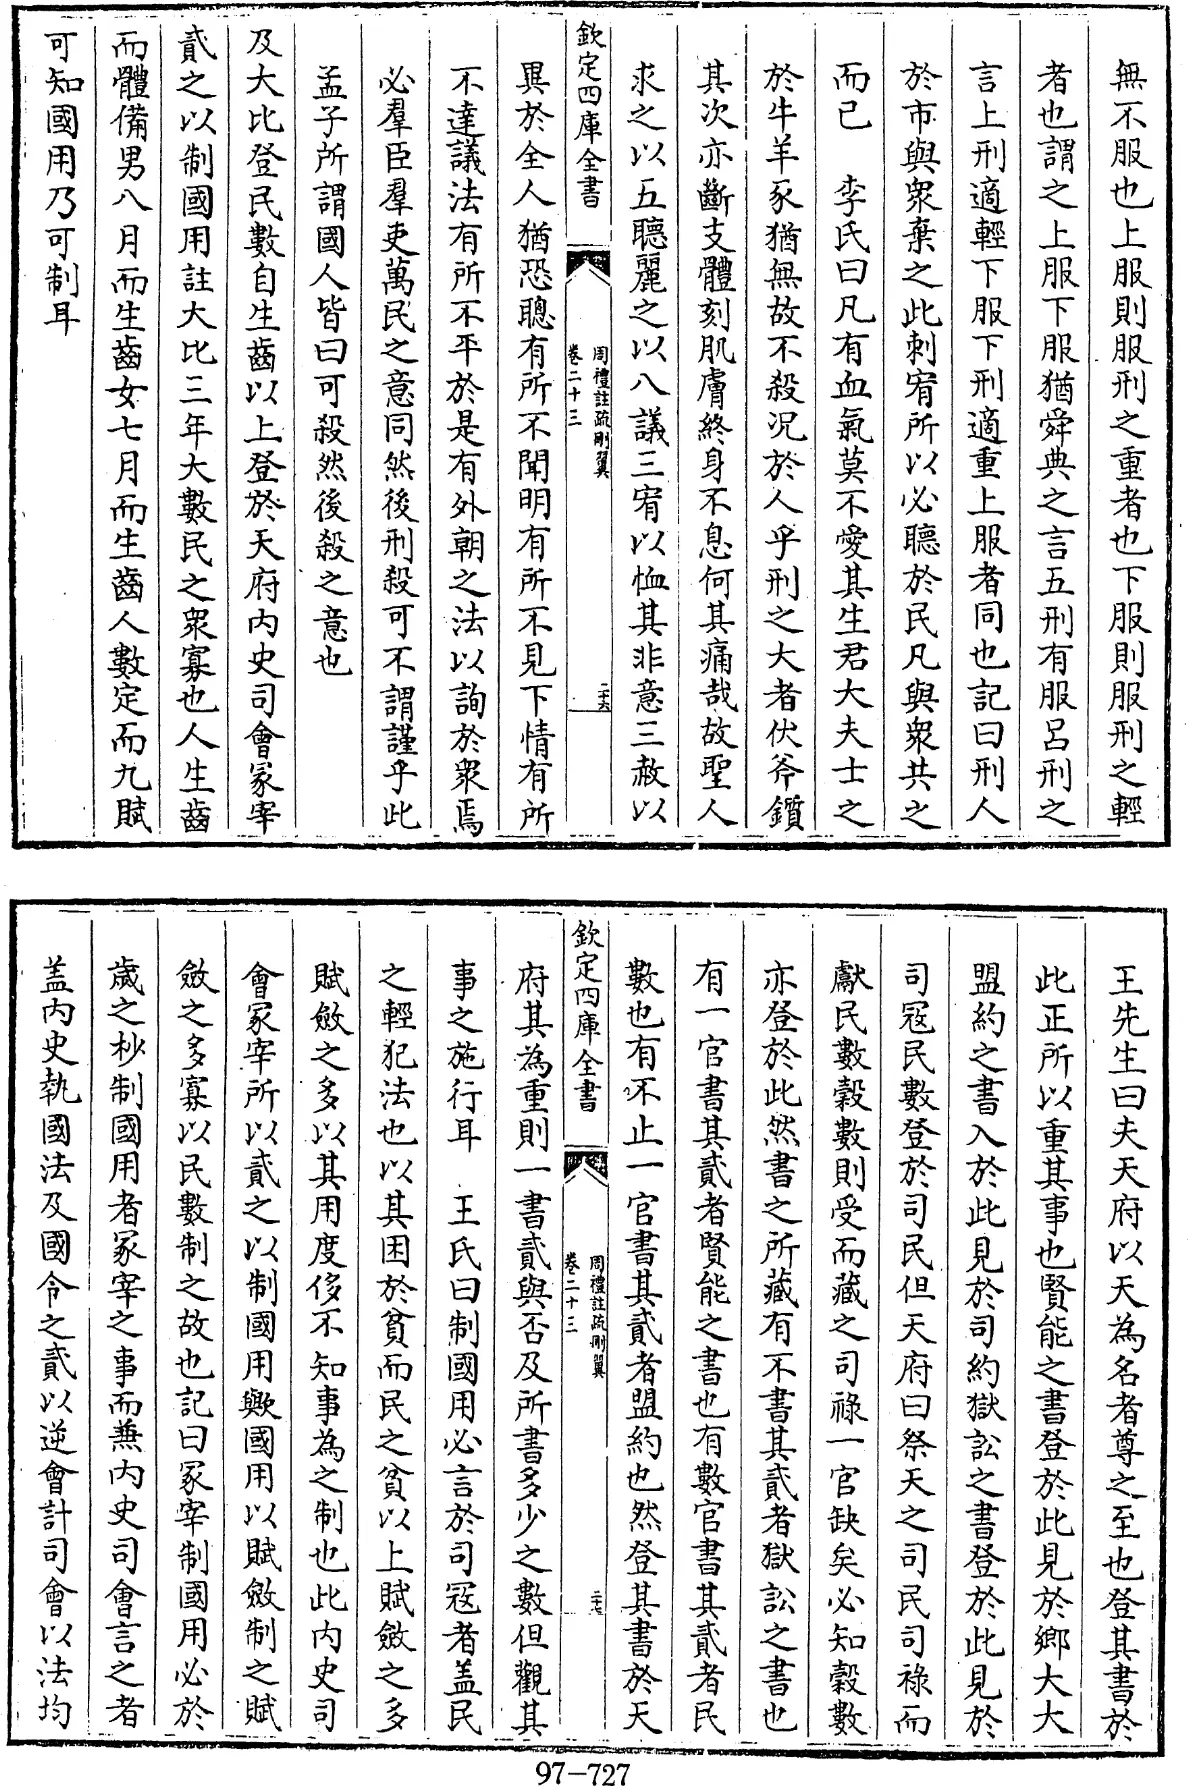 無不服也上服則服刑之重者也下服則服刑之輕
者也謂之上服下服猶舜典之言五刑有服呂刑之
言上刑適輕下服下刑適重上服者同也記曰刑人
於市與衆棄之此刺宥所以必聽於民凡與衆共之
而已　李氏曰凡有血氣莫不愛其生君大夫士之
於牛羊豕猶無故不殺况於人乎刑之大者伏斧鑕
其次亦斷支體刻肌膚終身不息何其痛哉故聖人
求之以五聽麗之以八議三宥以恤其非意三赦以
欽定四庫全書
周禮註疏刪翼
卷二十三
二十六
異於全人猶恐聰有所不聞明有所不見下情有所
不達議法有所不平於是有外朝之法以詢於衆焉
必羣臣羣吏萬民之意同然後刑殺可不謂謹乎此
孟子所謂國人皆曰可殺然後殺之意也
及大比登民數自生齒以上登於天府內史司會冢宰
貳之以制國用註大比三年大數民之衆寡也人生齒
而體備男八月而生齒女七月而生齒人數定而九賦
可知國用乃可制耳
王先生曰夫天府以天為名者尊之至也登其書於
此正所以重其事也賢能之書登於此見於鄉大夫
盟約之書入於此見於司約獄訟之書登於此見於
司寇民數登於司民但天府曰祭天之司民司祿而
獻民數穀數則受而藏之司祿一官缺矣必知穀數
亦登於此然書之所藏有不書其貳者獄訟之書也
有一官書其貳者賢能之書也有數官書其貳者民
數也有不止一官書其貳者盟約也然登其書於天
欽定四庫全書
周禮註疏刪翼
卷二十三
二十七
府其為重則一書貳與否及所書多少之數但觀其
事之施行耳　王氏曰制國用必言於司寇者盖民
之輕犯法也以其困於貧而民之貧以上賦斂之多
賦斂之多以其用度侈不知事為之制也此內史司
會冢宰所以貳之以制國用歟國用以賦斂制之賦
斂之多寡以民數制之故也記曰冢宰制國用必於
歲之杪制國用者冢宰之事而兼內史司會言之者
盖內史執國法及國令之貳以逆會計司會以法均
97-727